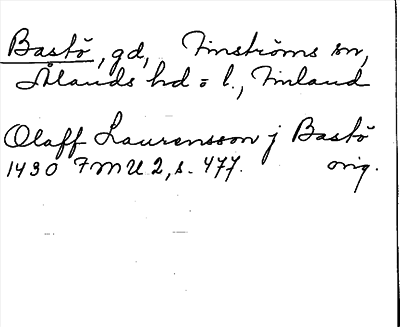 Bastö, gd, Finströms sn,
Ålands hd o l., Finland
Olaff Laurensson j Bastö
1430 FMU 2, s. 477. orig.